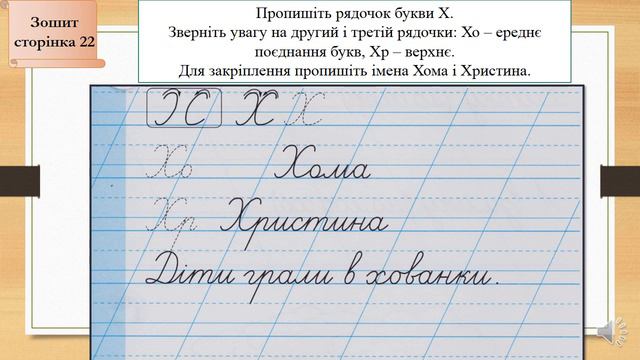 Зошит
сторінка 22
Пропишіть рядочок букви Х.
Зверніть увагу на другий і третій рядочки: Хо – ереднє
поєднання букв, Хр – верхнє.
Для закріплення пропишіть імена Хома і Христина.
Х Х
Хо Хома
Хр Христина
Діти грали в хованки.